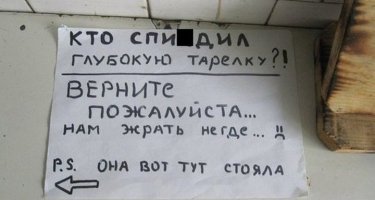 КТО СПИ ДИЛ
ГЛУБОКУЮ ТАРЕЛКУ?!
ВЕРНИТЕ
ПОЖАЛУЙСТА...
НАМ ЖРАТЬ НЕГДЕ...
P.S. ОНА ВОТ ТУТ СТОЯЛА